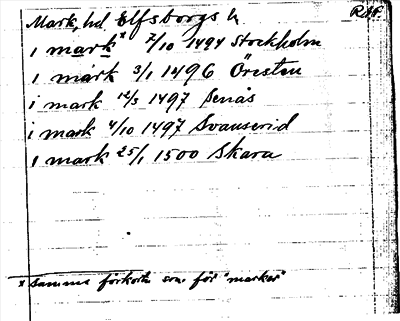 Mark, hd Elfsborgs l.
R.A.
i mark* 7/10 1494 Stockholm
i mark 3/1 1496 Öresten
i mark 12/3 1497 Senäs
i mark 4/10 1497 Svanserid
i mark 25/1 1500 Skara
* samma förkortn som för "marker"